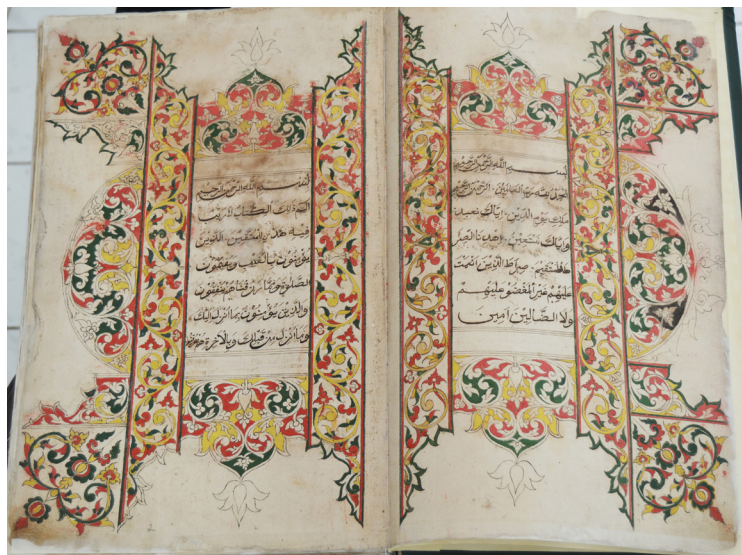 بسم الله الرحمن الرحيم
الحمد لله رب العالمين الرحمن الرحيم
ملك يوم الدين اياك نعبد
واياك نستعين اهدنا الصرا
ط المستقيم صراط الذين انعمت
عليهم غير المغضوب عليهم
ولا الضالين امين
بسم الله الرحمن الرحيم
الم ذلك الكتاب لا ريب
فيه هدى للمتقين الذين
يؤمنون بالغيب ويقيمون
الصلوة ومما رزقناهم ينفقون
والذين يؤمنون بما انزل اليك
وما انزل من قبلك وبالاخرة هم